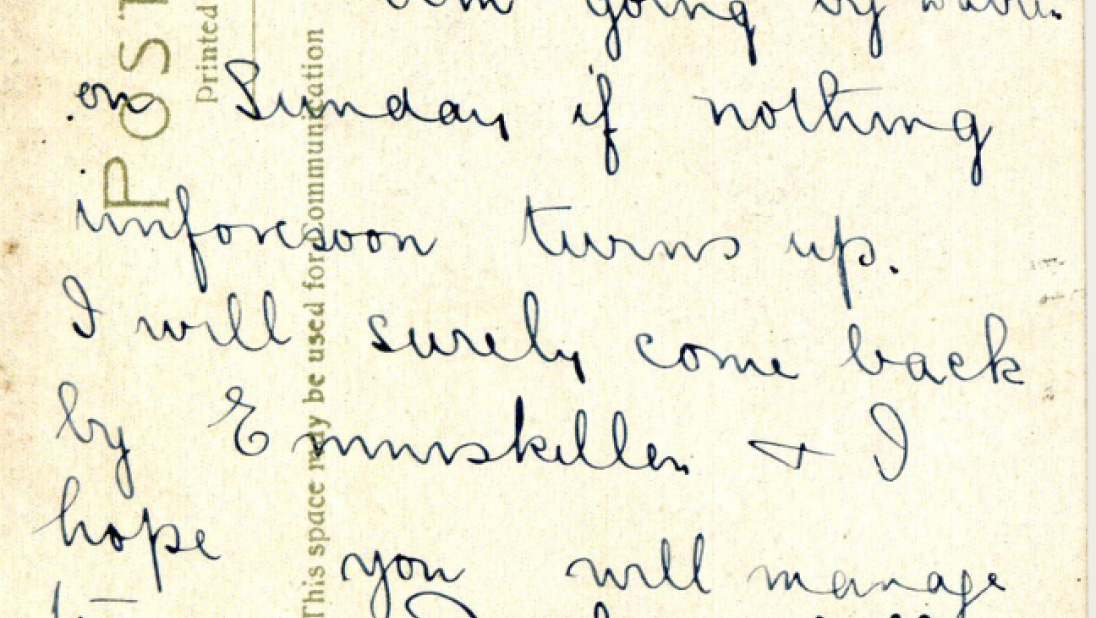 going by
on Sunday if nothing
unforesoon turns up.
I will surely come back
by Enniskillen + I
hope you will manage
POST
Printed
This space may be used for Communication